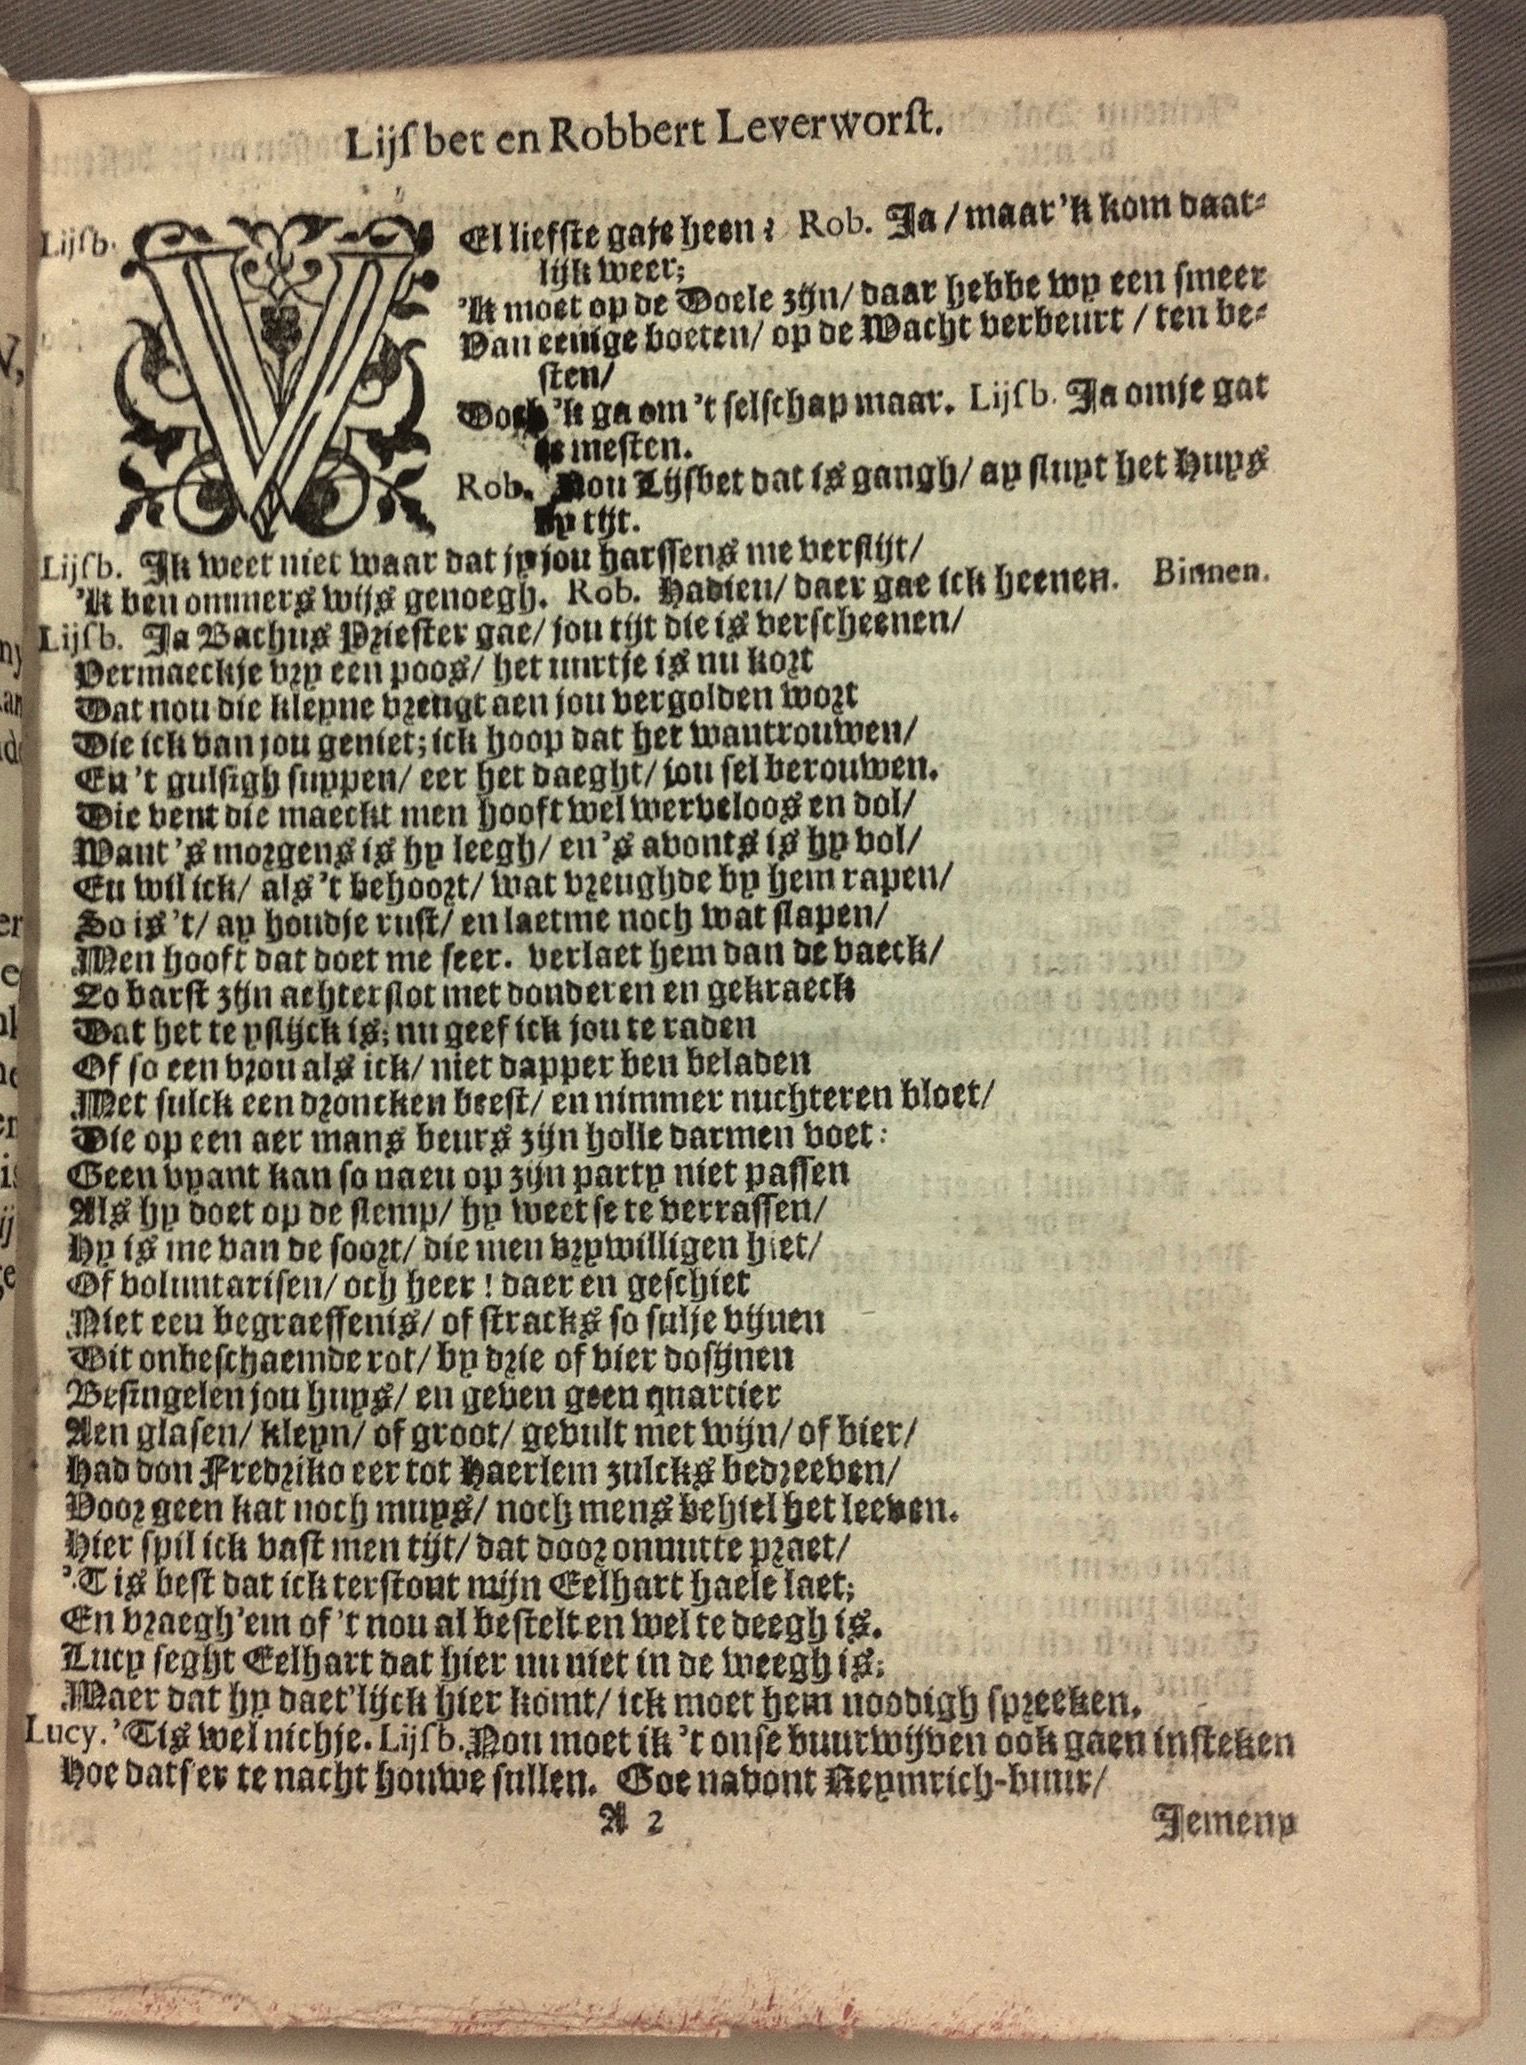 Lijſbet en Robbert Leverworſt.
Lijſb. VEl liefſte gaje heen? Rob. Ja / maar 'k kom daat-
lijk weer;
'k moet op de Doele zijn / daar hebbe wy een ſmeer
Van eenige boeten / op de Wacht verbeurt / ten be-
ſten /
Doch 'k ga om 't ſelſchap maar. Lijſb. Ja om je gat
te meſten.
Rob. Nou Lijſbet dat is gangh / ay ſluyt het huys
by tijt.
Lijſb. Ik weet niet waar dat jy jou harſſens me verſlijt /
'k ben ommers wijs genoegh. Rob. Hadieu / daer gae ick heenen. Binnen.
Lijſb. Ja Bachus Prieſter gae / jou tijt die is verſcheenen /
Vermaeckje vry een poos / het uurtje is nu kort
Dat nou die kleyne vreugt aen jou vergolden wort
Die ick van jou geniet; ick hoop dat het wantrouwen /
En 't gulſigh ſuypen / eer het daeght / jou ſel berouwen.
Die vent die maeckt men hooft wel werveloos en dol /
Want 's morgens is hy leegh / en 's avonts is hy vol /
En wil ick / als 't behoort / wat vreughde by hem rapen /
So is 't / ay houdje ruſt / en laetme noch wat ſlapen /
Men hooft dat doet me ſeer. verlaet hem dan de vaeck /
So barſt zijn achterſlot met donderen en gekraeck
Dat het te yſlijck is; nu geef ick jou te raden
Of ſo een vrou als ick / niet dapper ben beladen
Met ſulck een droncken beeſt / en nimmer nuchteren bloet /
Die op een aer mans beurs zijn holle darmen voet:
Geen vyant kan ſo naeu op zijn party niet paſſen
Als hy doet op de ſlemp / hy weet ſe te verraſſen /
Hy is me van de ſoort / die men vrywilligen hiet /
Of voluntariſen / och heer! daer en geſchiet
Niet een begraeffenis / of ſtracks ſo ſulje vijnen
Dit onbeſchaemde rot / by drie of vier doſijnen
Beſingelen jou huys / en geven geen quartier
Aen glaſen / kleyn / of groot / gevult met wijn / of bier /
Had don Fredriko eer tot Haerlem zulcks bedreeven /
Voor geen kat noch muys / noch mens behiel het leeven.
Hier ſpil ick vaſt men tijt / dat door onnutte praet /
'T is beſt dat ick terſtont mijn Eelhart haele laet;
En vraegh 'em of 't nou al beſtelt en wel te deegh is.
Lucy ſeght Eelhart dat hier nu niet in de weegh is;
Maer dat hy daet'lijck hier komt / ick moet hem noodigh ſpreeken.
Lucy. 'Tis wel nichje. Lijſb. Nou moet ik 't onſe buurwijven ook gaen inſteken
Hoe datſ'er te nacht houwe ſullen. Goe navont Reymrich-buur /
A 2
Jemeny